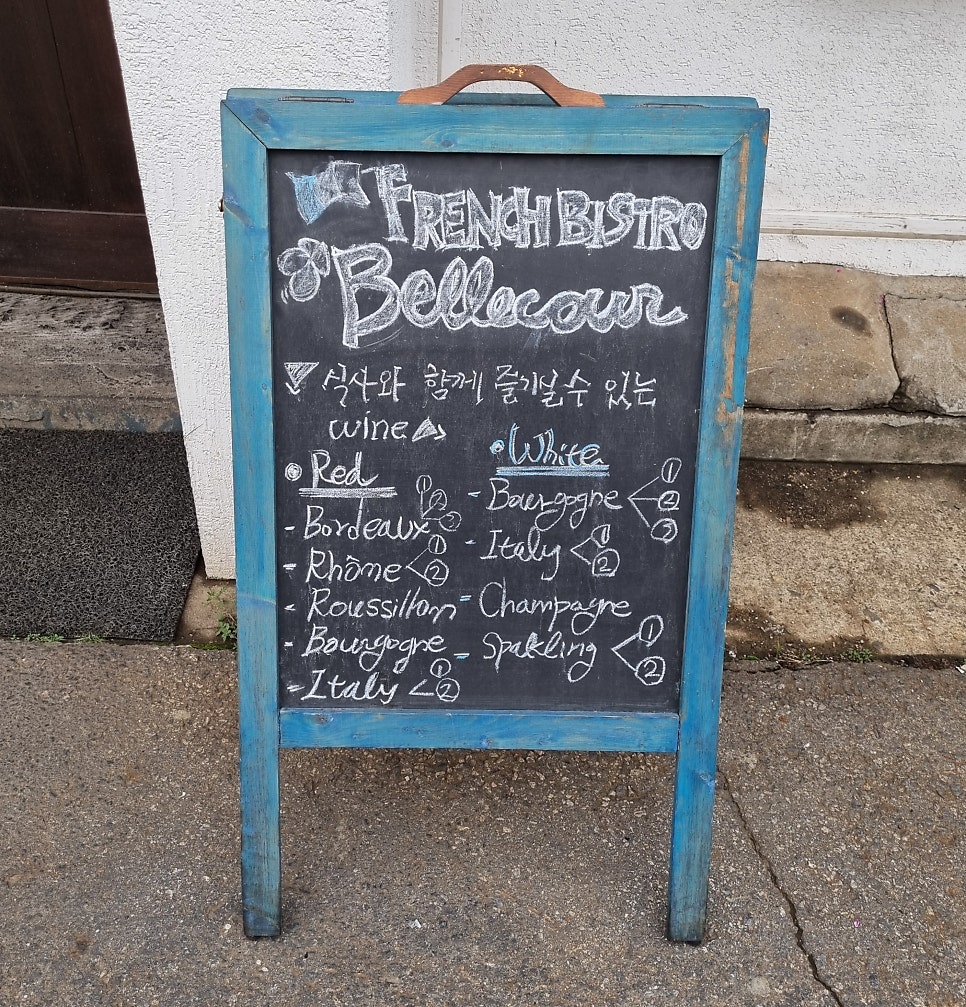 FRENCH BISTRO
Bellecour
식사와 함께 즐기실 수 있는
wine
• Red
- Bordeaux ① ② ③
- Rhône < ① ②
- Roussillon
- Bourgogne
- Italy < ① ②
• White
- Bourgogne < ① ② ③
- Italy < ① ②
- Champagne
- Spakling < ① ②